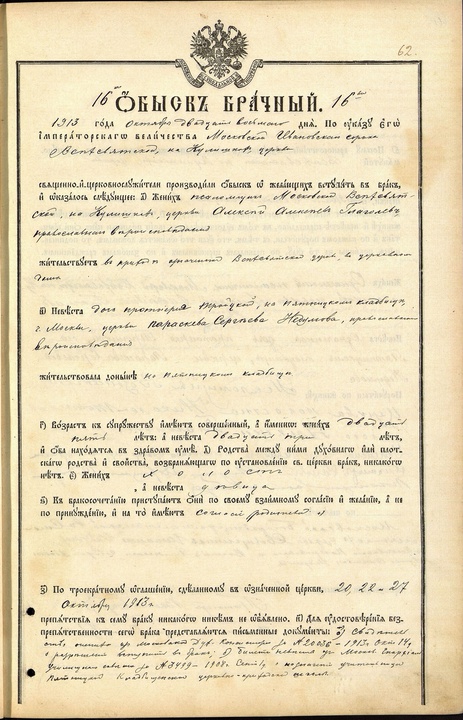 62.
16й Ѻбыскъ брачный. 16й
1913 года октября двадцать восьмаго дня. По ѹказу Єгѡ
Императорскаго величества Московской Ивановскаго сорока
Всѣхсвятской, на Кулишкахъ церкви
священно.и.церковнослужители производили Ѻбыскъ ѡ желающихъ вступить въ бракъ,
и ѡказалось слѣдующее: а҃) Женихъ псаломщикъ Московской Всѣхсвят-
ской, на Кулишкахъ, церкви Алексѣй Глаголевъ
православнаго вѣроисповѣданія
жительствуетъ въ приходѣ Всѣхсвятской церкви, въ церковномъ
домѣ
в҃) Невѣста дочь протоіерея Троицкой, на Пятницкомъ кладбищѣ,
г. Москвы, церкви Параскева Сергѣева
вѣроисповѣданія
жительствовала донынѣ на Пятницкомъ кладбищѣ
г҃) Возрастъ къ супружеству имѣютъ совершенный, а именно: женихъ двадцати
пяти лѣтъ: а невѣста двадцати трехъ лѣтъ,
и Ѻба находятся въ здравомъ ѹмѣ. д҃) Родства между ними духовнаго или плот-
скаго родства и свойства, возбраняющаго по установленію св. церкви бракъ, никакого
нѣтъ. є҃) Женихъ холостъ
, а невѣста дѣвица
ѕ҃) Къ бракосочетанію приступаютъ Ѻни по своему взаимному согласію и желанію, а не
по принужденію, и на то имѣютъ согласіе родителей
з҃) По троекратному ѡглашенію, сдѣланному въ ѡзначенной церкви, 20, 22 и 27
Октября 1913 г.
препятствія къ сему браку никакого никѣмъ не ѡбъявлено. и҃) Для ѹдостовѣренія без-
препятственности сегѡ брака представляются письменные документы: Московской Дух. Консисторіи за № 1913 г. Окт.
невѣсты Москов. Епархіал.
Училищнаго за № 1908 г.
Пятницкой Кладбищенской церковно-приходской школы.